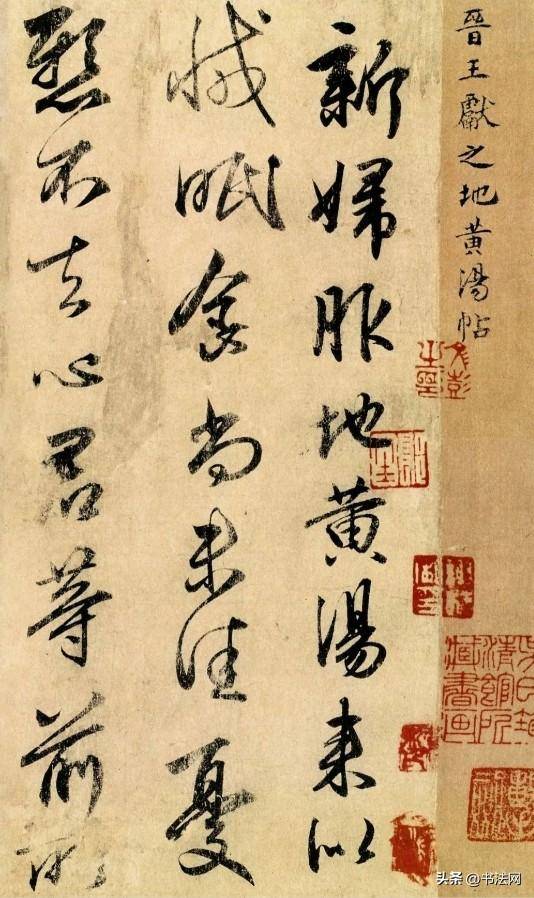 晉王獻之地黄湯帖
新婦服地黄湯来似
減眠食尚未佳憂
懸不去心君等前所
文彭之印
头条 @书法网